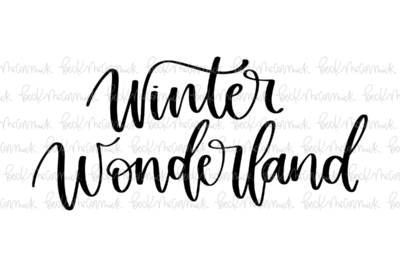 Winter
Wonderland